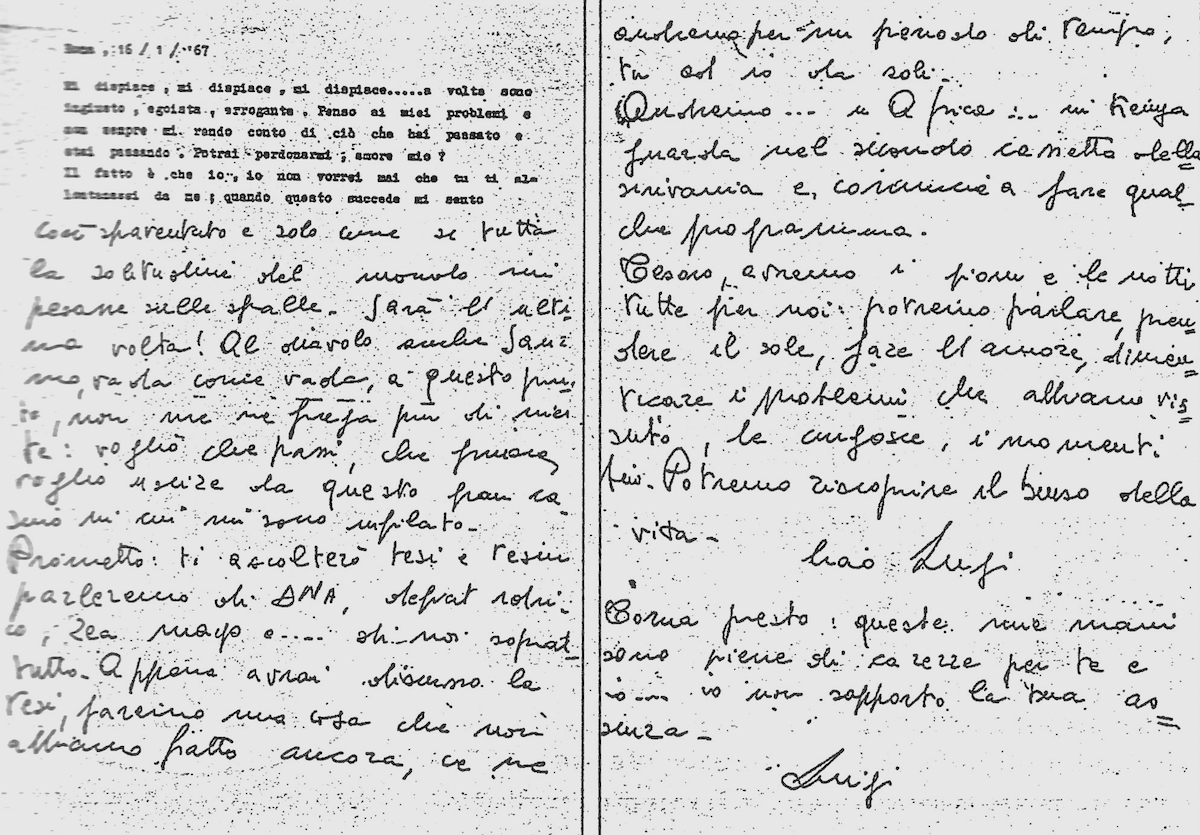 Roma , 16 / 1 / '67
Mi dispiace , mi dispiace , mi dispiace.....a volte sono
ingiusto , egoista , arrogante . Penso ai miei problemi e
non sempre mi rendo conto di ciò che hai passato e
stai passando . Potrai perdonarmi ; amore mio ?
Il fatto è che io , io non vorrei mai che tu ti al=
lontanassi da me ; quando questo succede mi sento
così spaventato e solo come se tutta
la solitudine del mondo mi
pesasse sulle spalle. Sarà l'ulti-
ma volta! Al diavolo anche Sanre-
mo, vada come vada, a questo pun-
to, non me ne frega più di nien
te: voglio che passi, che finisca,
voglio uscire da questo gran ca
sino in cui mi sono infilato.
Prometto: ti ascolterò tesi e tesine
parleremo di DNA, defrat
co, Zea mays e..... di noi soprat=
tutto. Appena avrai discusso la
tesi, faremo una cosa che non
abbiamo fatto ancora, ce ne
andremo per un periodo di tempo,
tu ed io da soli.
Andremo... in Africa... in Kenya
guarda nel secondo cassetto della
scrivania e, comincia a fare qual
che programma.
Tesoro, avremo i giorni e le notti
tutte per noi: potremo parlare, pren=
dere il sole, fare l'amore, dimen=
ticare i problemi che abbiamo vis=
suto, le angosce, i momenti
bui. Potremo riscoprire il senso della
vita.
Ciao Luigi
Torna presto: queste mie mani
sono piene di carezze per te e
io.... io non sopporto la tua as=
senza.
Luigi